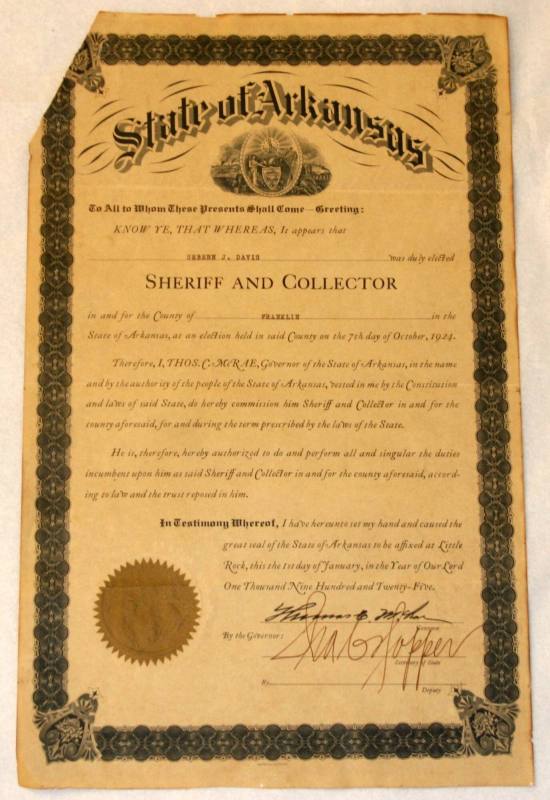 State of Arkansas
To All to Whom These Presents Shall Come—Greeting:
KNOW YE, THAT WHEREAS, It appears that
J. DAVIS was duly elected
SHERIFF AND COLLECTOR
in and for the County of FRANKLIN in the
State of Arkansas, at an election held in said County on the 7th day of October, 1924.
Therefore, I, THOS. C. McRAE, Governor of the State of Arkansas, in the name
and by the authority of the people of the State of Arkansas, vested in me by the Constitution
and laws of said State, do hereby commission him Sheriff and Collector in and for the
county aforesaid, for and during the term prescribed by the laws of the State.
He is, therefore, hereby authorized to do and perform all and singular the duties
incumbent upon him as said Sheriff and Collector in and for the county aforesaid, accord-
ing to law and the trust reposed in him.
In Testimony Whereof, I have hereunto set my hand and caused the
great seal of the State of Arkansas to be affixed at Little
Rock, this the 1st day of January, in the Year of Our Lord
One Thousand Nine Hundred and Twenty-Five.
Thomas C. McRae
Governor
By the Governor:
Secretary of State
By
Deputy